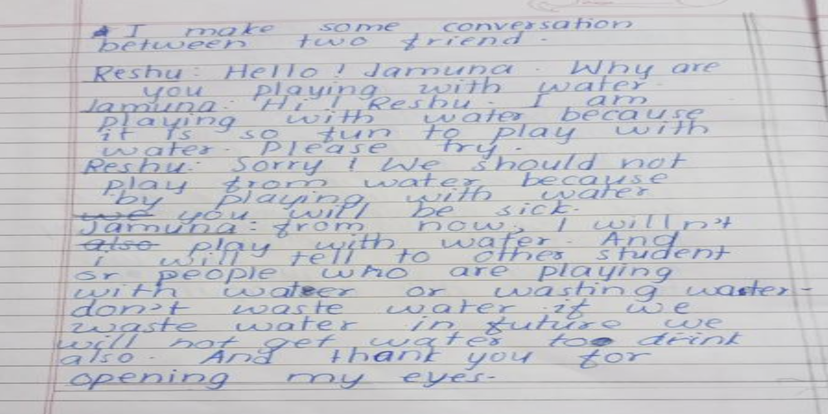 I make some conversation
between two friend.
Reshu: Hello! Jamuna. Why are
you playing with water.
Jamuna: Hi! Reshu. I am
playing with water because
it is so fun to play with
water. Please try.
Reshu: Sorry! We should not
play from water because
by playing with water
we you will be sick.
Jamuna: from now, I willn't
also play with water. And
i will tell to other student
or people who are playing
with water or wasting water-
don't waste water if we
waste water in future we
will not get water to drink
also. And thank you for
opening my eyes-